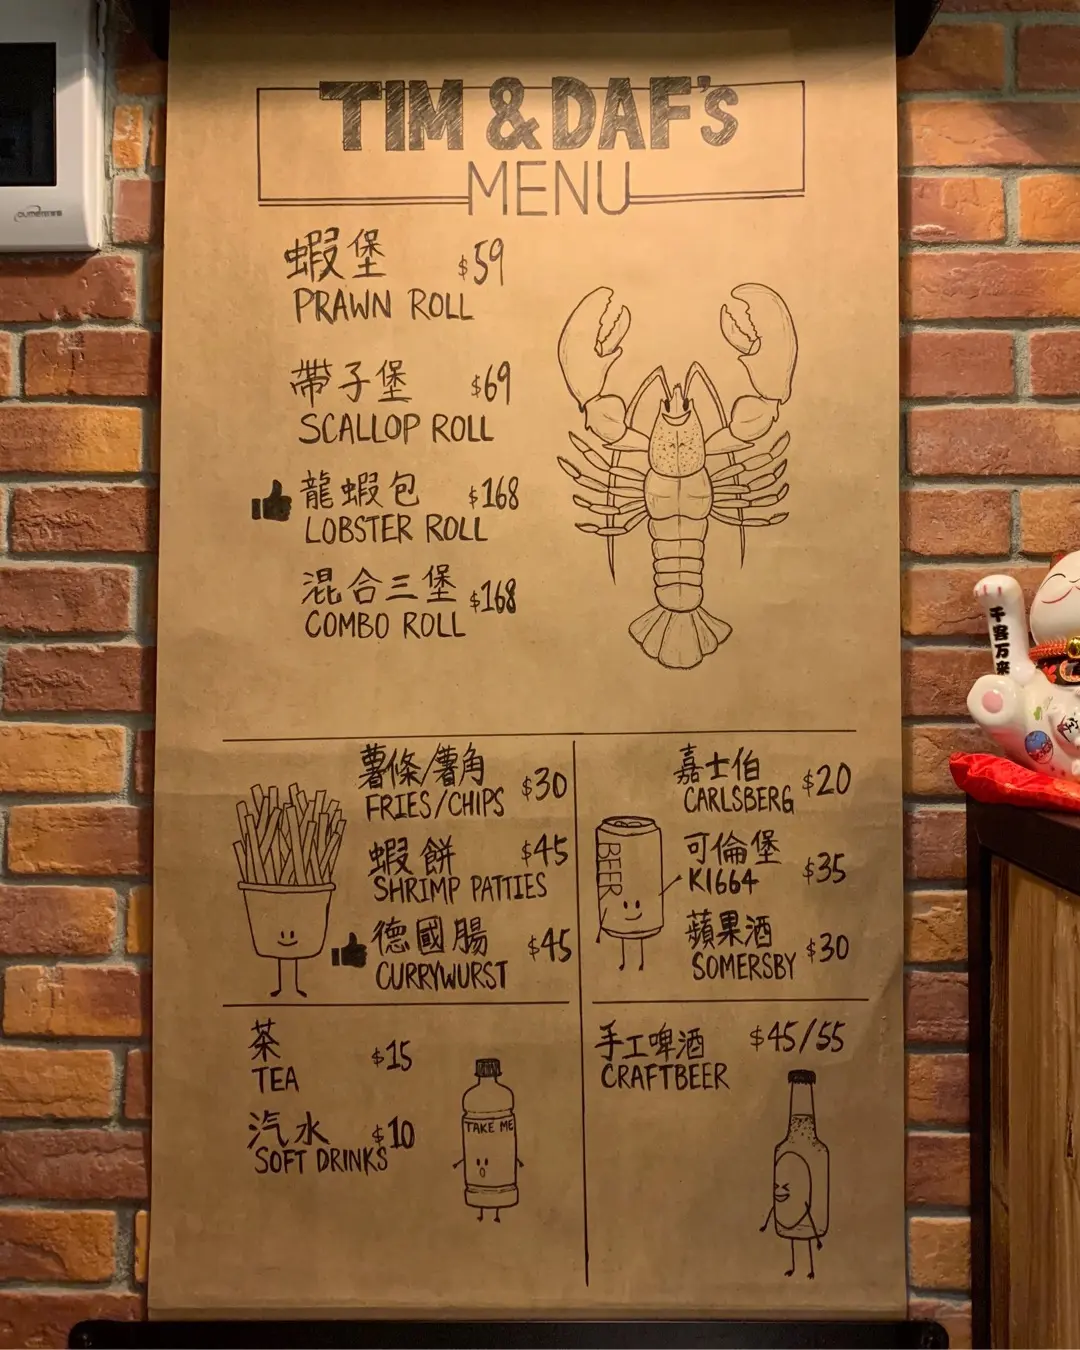 TIM & DAF'S
MENU
蝦堡 $59
PRAWN ROLL
帶子堡 $69
SCALLOP ROLL
龍蝦包 $168
LOBSTER ROLL
混合三堡 $168
COMBO ROLL
薯條/薯角 $30
FRIES/CHIPS
蝦餅 $45
SHRIMP PATTIES
德國腸 $45
CURRYWURST
嘉士伯 $20
CARLSBERG
BEER
可倫堡 $35
K1664
蘋果酒 $30
SOMERSBY
茶 $15
TEA
汽水 $10
SOFT DRINKS
TAKE ME
手工啤酒 $45/55
CRAFTBEER
千客万来